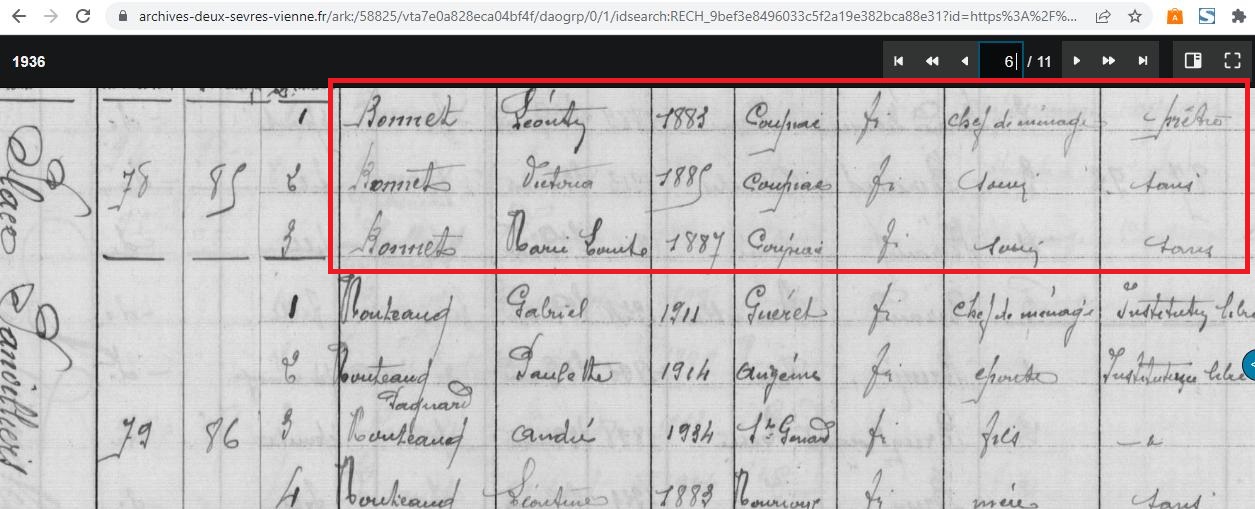 archives-deux-sevres-vienne.fr/ark:/58825/vta7e0a828eca04bf4f/daogrp/0/1/idsearch:RECH_9bef3e8496033c5f2a19e382bca88e31?id=https%3A%2F%...
1936 6 / 11
1 Bonnet 1883 Coupiac fr chef de ménage prêtre
78 85 2 Bonnet Victoria 1885 Coupiac fr soeur sans
3 Bonnet Marie Louise 1887 Coupiac fr soeur sans
1 Gabriel 1911 Guéret fr chef de ménage Instituteur libre
2 Paulette 1914 fr épouse Institutrice libre
79 86 3 André 1934 fr fils
4 Léontine 1883 fr mère sans
Place